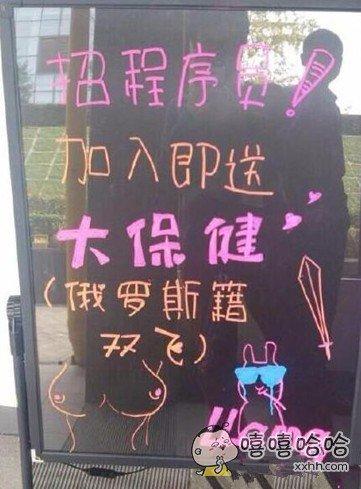 招程序员!
加入即送
大保健
(俄罗斯籍
双飞)
嘻嘻哈哈
xxhh.com